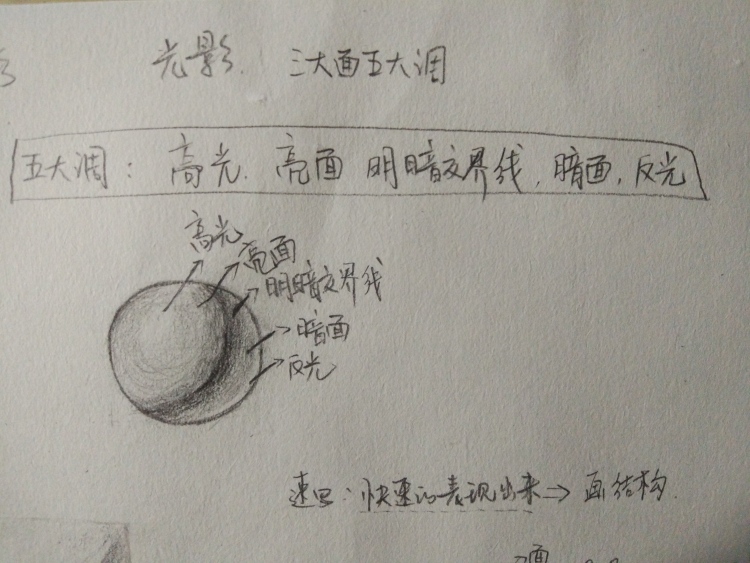 光影. 三大面五大调
五大调：高光. 亮面 明暗交界线, 暗面, 反光
高光
亮面
明暗交界线
暗面
反光
速写：快速的表现出来⇒ 画结构.